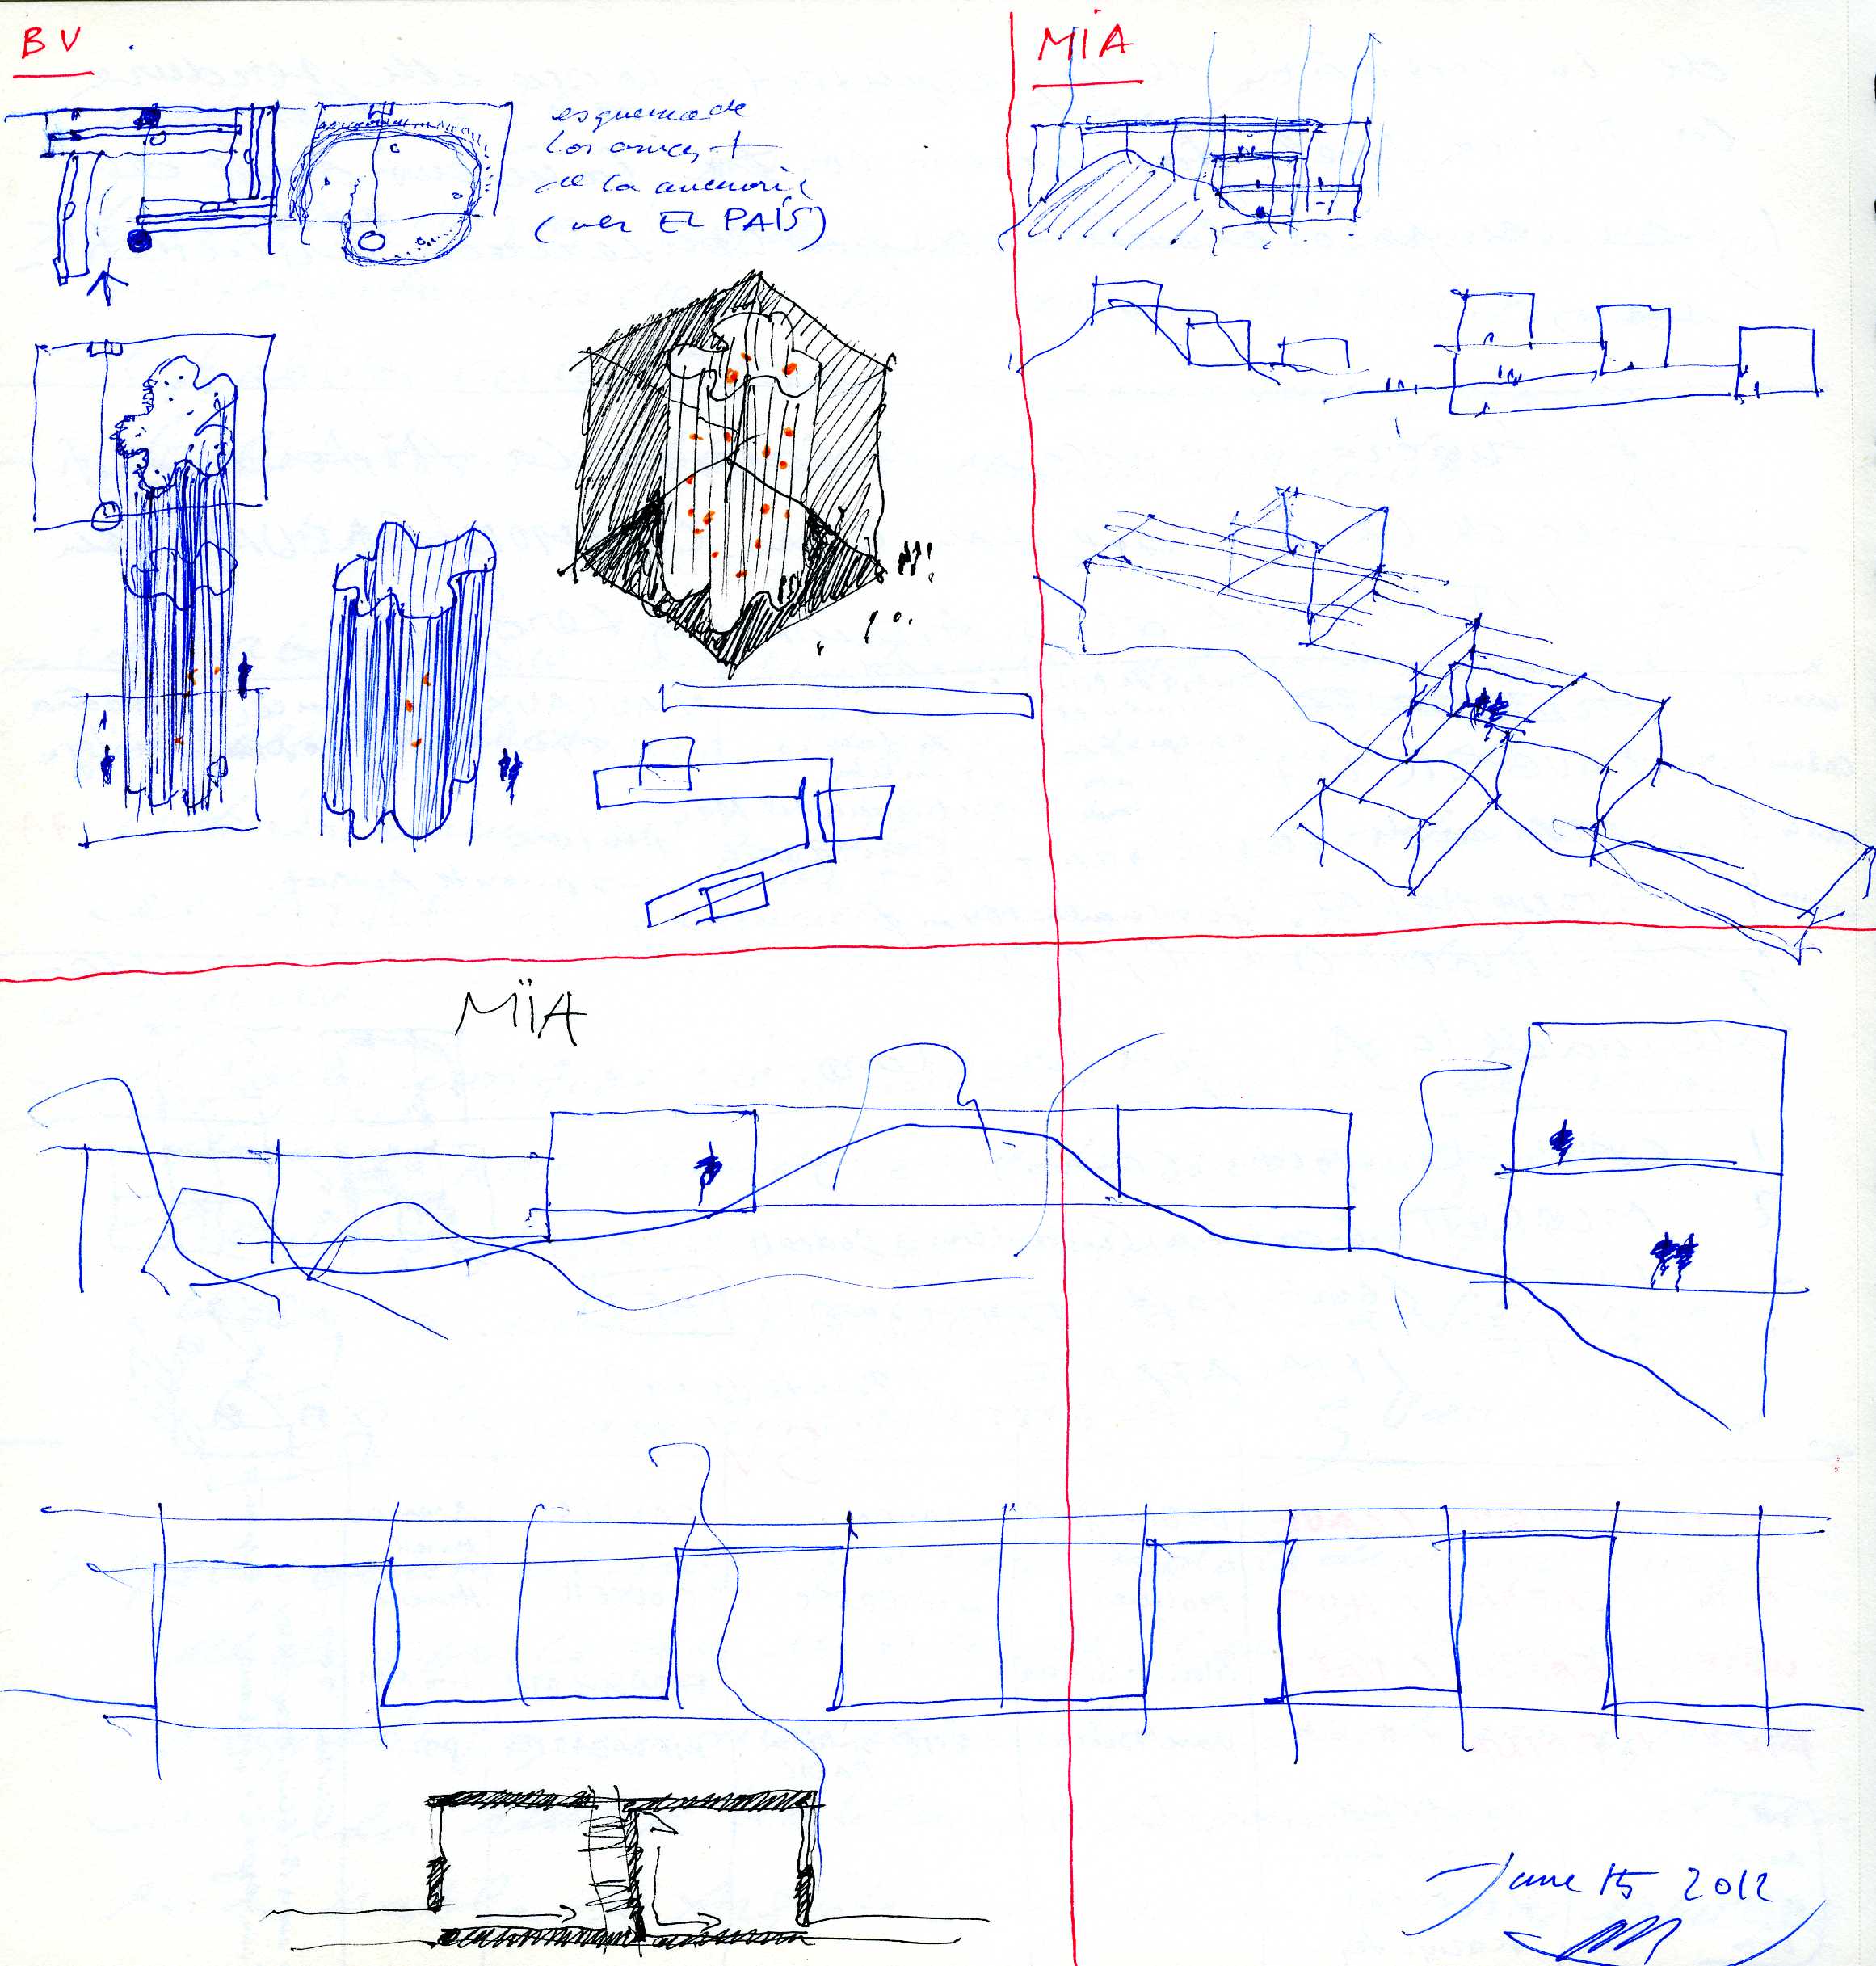 BV
esquema de
los
de la memoria
(ver EL PAÍS)
MÍA
MÏA
June 15 2012